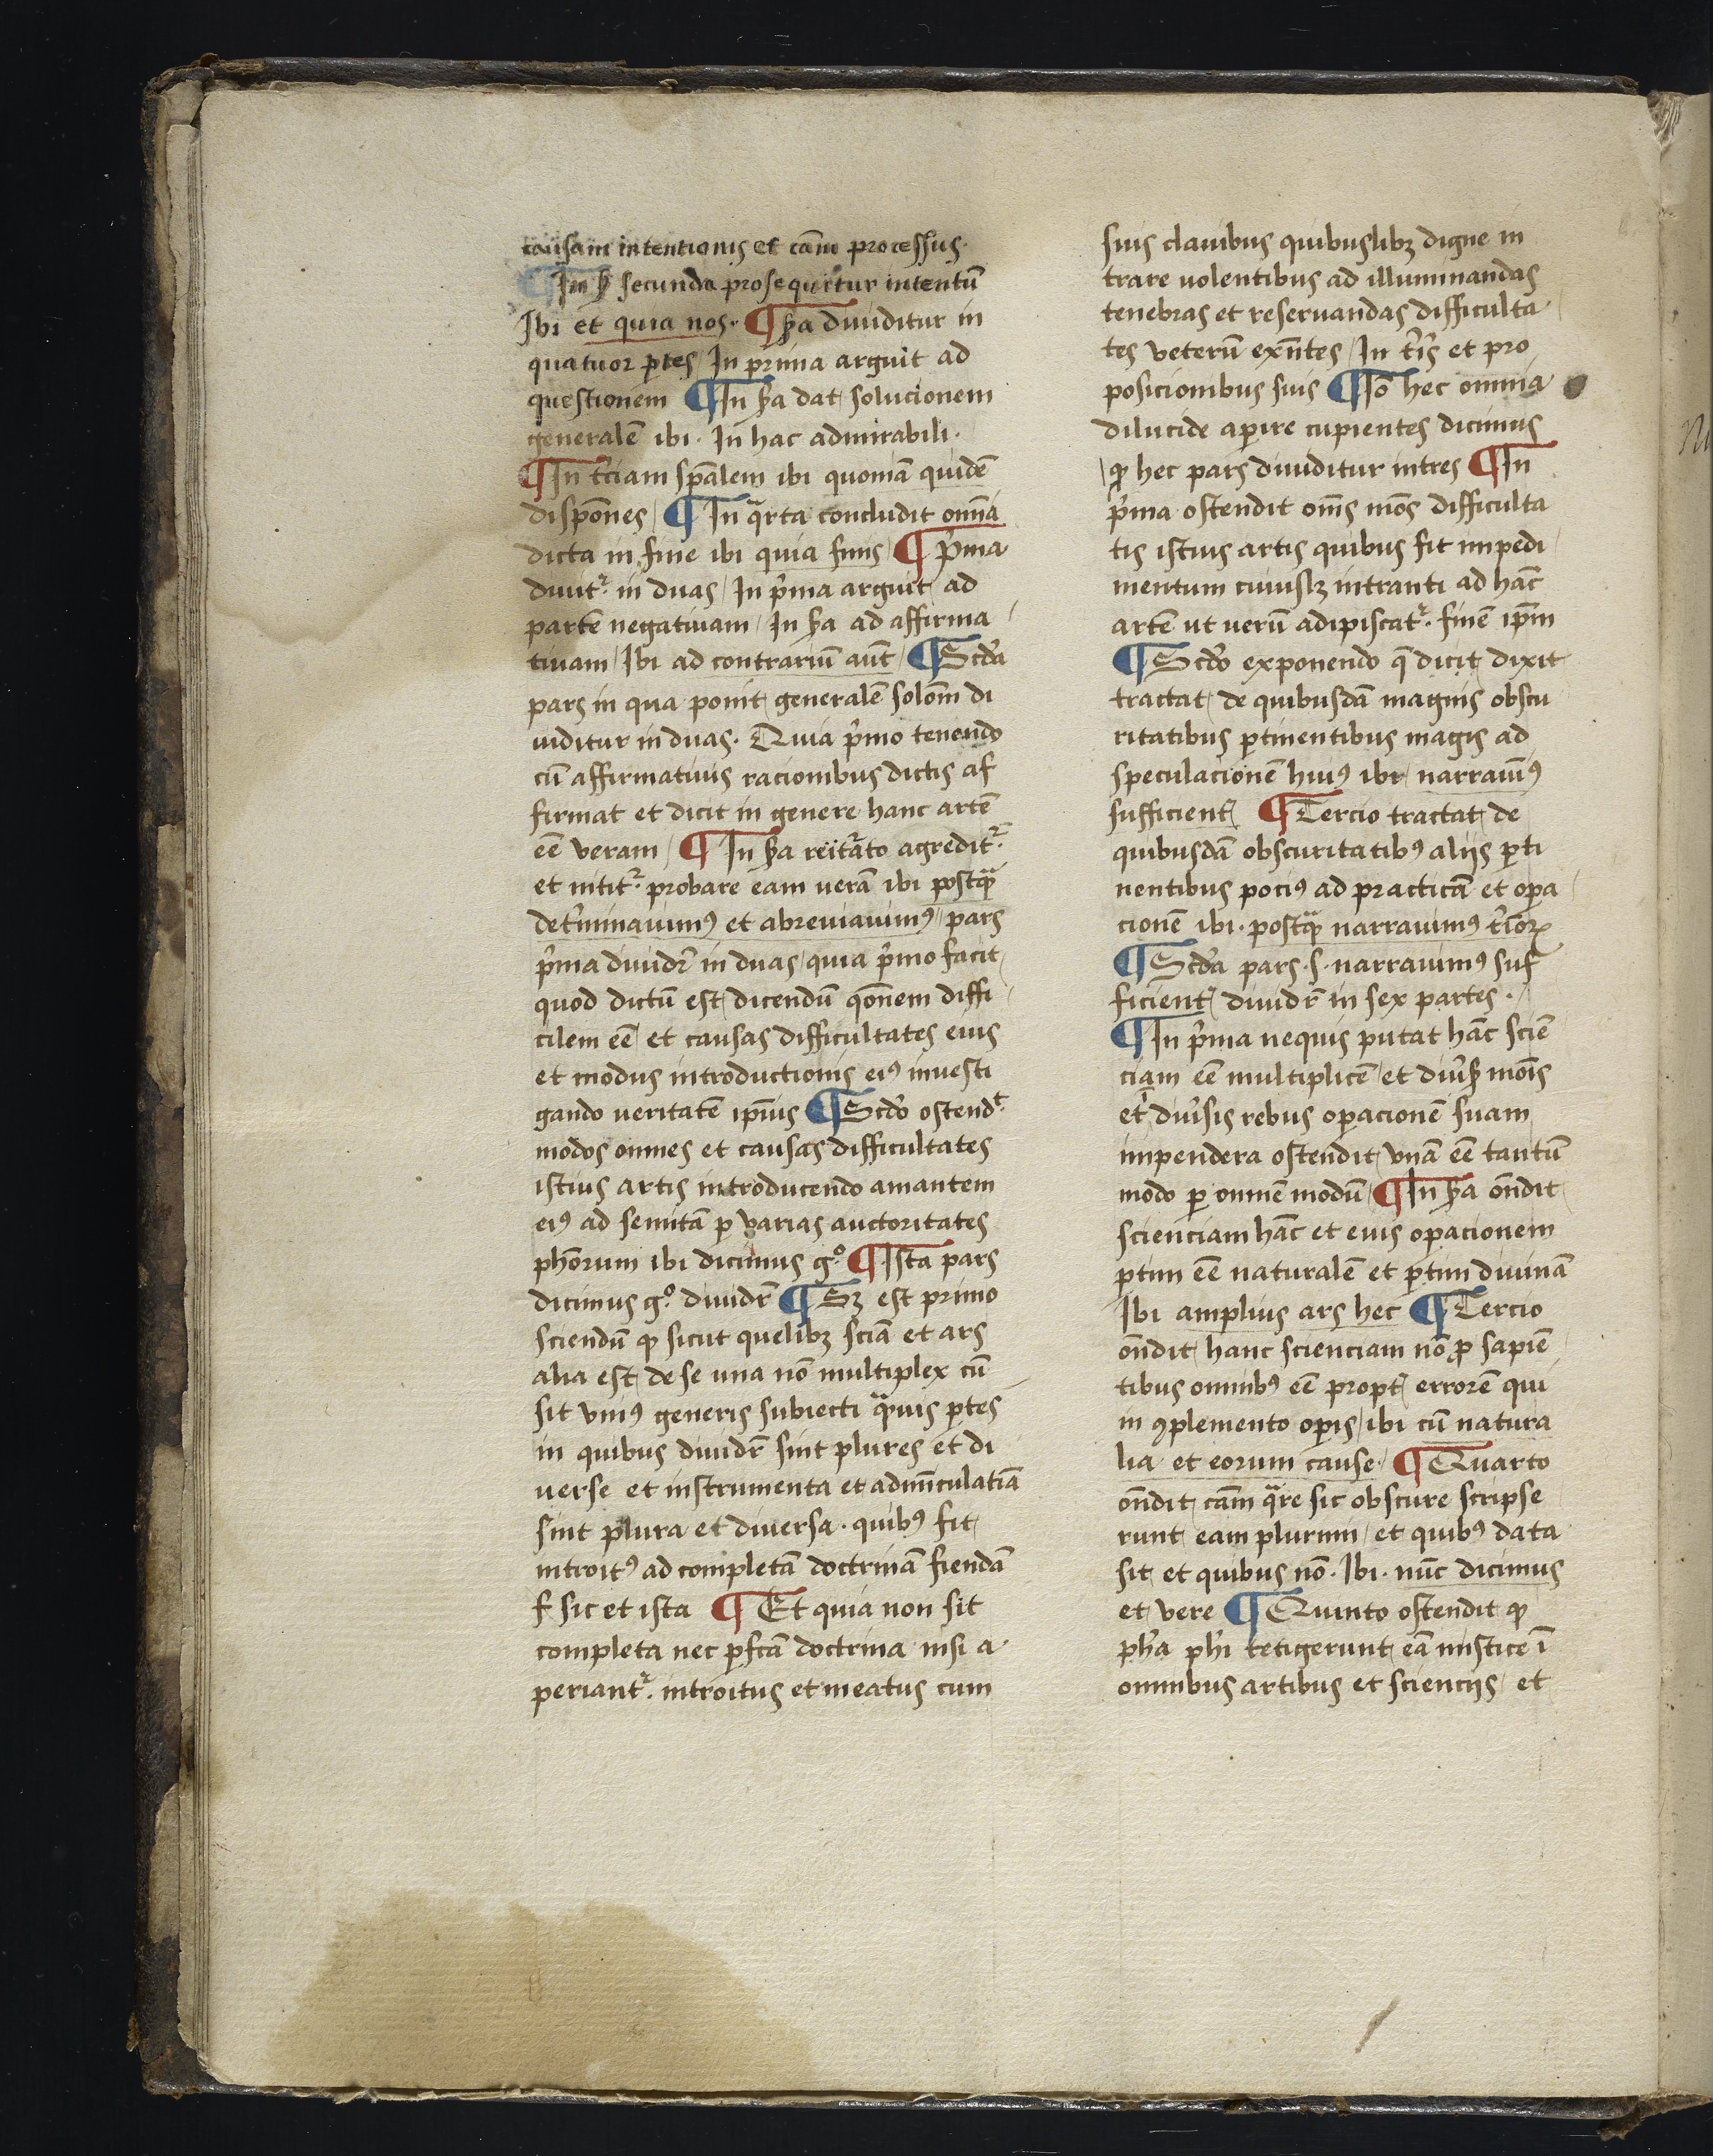 causam intentionis et cam̄ processus·
¶ In ẜ secunda prosequitur intentū
Ibi et quia nos· ¶ ẜa diuiditur in
quatuor ꝑtes / In prima arguit ad
questionem ¶ In ẜa dat solucionem
generalē ibi · In hac admirabili ·
¶ In t̓ciam sp̄alem ibi quoniā quidē
dispōnes / ¶ In qͣrta concludit om̄ia
dicta in fine ibi quia finis / ¶ P̓ma
diuit᷑ in duas / In p̓ma arguit ad
partē negatiuam / In ẜa ad affirma
tiuam / Ibi ad contrariū aūt / ¶ Scd̓a
pars in qua ponit generalē solōm di
uiditur in duas · Quia p̓mo tenendo
cū affirmatiuis racionibus dictis af
firmat et dicit in genere hanc artē
eē veram / ¶ In ẜa reit̓ato agredit᷑
et nitit᷑ probare eam uerā ibi postqͣꝫ
det̓minauimꝰ et abreuiauimꝰ / pars
p̓ma diuidr̄ in duas / quia p̓mo facit
quod dictū est / dicendū qōnem diffi
cilem eē / et causas difficultates eius
et modus introductionis eiꝰ inuesti
gando ueritatē ip̄ius ¶ Scd̓o ostendᵗ
modos omnes et causas difficultates
istius artis introducendo amantem
eiꝰ ad semitā ꝑ varias auctoritates
ph̄orum ibi dicimus gͦ ¶ Ista pars
dicimus gͦ diuidr̄ ¶ Sꝫ est primo
sciendū ꝙ sicut quelibꝫ sciā et ars
alia est / de se una nō multiplex cū
sit vniꝰ generis subiecti qͣuis ꝑtes
in quibus diuidr̄ sint plures et di
uerse et instrumenta et adminiculatiā
sint plura et diuersa · quibꝰ fit
introitꝰ ad completā doctrinā fiendā
f sic et ista ¶ Et quia non sit
completa nec ꝑfcā doctrina nisi a
periant᷑ introitus et meatus cum
suis clauibus quibuslibꝫ digne in
trare uolentibus ad illuminandas
tenebras et reseruandas difficulta
tes veterū exn̄tes / In t̓is et pro
posicionibus suis ¶ Iō hec omnia
dilucide aꝑire cupientes dicimus
ꝙ hec pars diuiditur in tres ¶ In
p̓ma ostendit om̄s mōs difficulta
tis istius artis quibus fit impedi
mentum cuiuslꝫ intranti ad hāc
artē ut uerū adipiscat᷑ · finē ip̄m
¶ Scd̓o exponendo q̄ dicit / dixit
tractat / de quibusdā magnis obscu
ritatibus ꝑtinentibus magis ad
speculacionē huiꝰ ibi / narrauimꝰ
sufficient̄ ¶ Tercio tractat / de
quibusdā obscuritatibꝰ alijs ꝑti
nentibus pociꝰ ad practicā et oꝑa
cionē ibi · postqͣꝫ narrauimꝰ t̓ioꝝ
¶ Scd̓a pars · s · narrauimꝰ suf
ficient̄ / diuidr̄ in sex partes ·
¶ In p̓ma nequis putat hāc sciē
ciam eē multiplicē / et diu̓ẜ mōis
et diu̓sis rebus oꝑacionē suam
impendera ostendit / vnā eē tantū
modo ꝑ omnē modū / ¶ In ẜa ondit
scienciam hāc et eius oꝑacionem
ꝑtim eē naturalē et ꝑtim diuinā
Ibi amplius ars hec ¶ Tercio
ondit / hanc scienciam nō ꝓ sapiē
tibus omnibꝰ eē propt̄ errorē qui
in ꝯplemento oꝑis / ibi cū natura
lia et eorum cause · ¶ Quarto
ondit cam̄ qͣre sic obscure scripse
runt eam plurimi / et quibꝰ data
sit et quibus nō · Ibi · nūc dicimus
et vere ¶ Quinto ostendit ꝙ
ph̓a ph̓i tetigerunt eā mistice ī
omnibus artibus et sciencijs / et